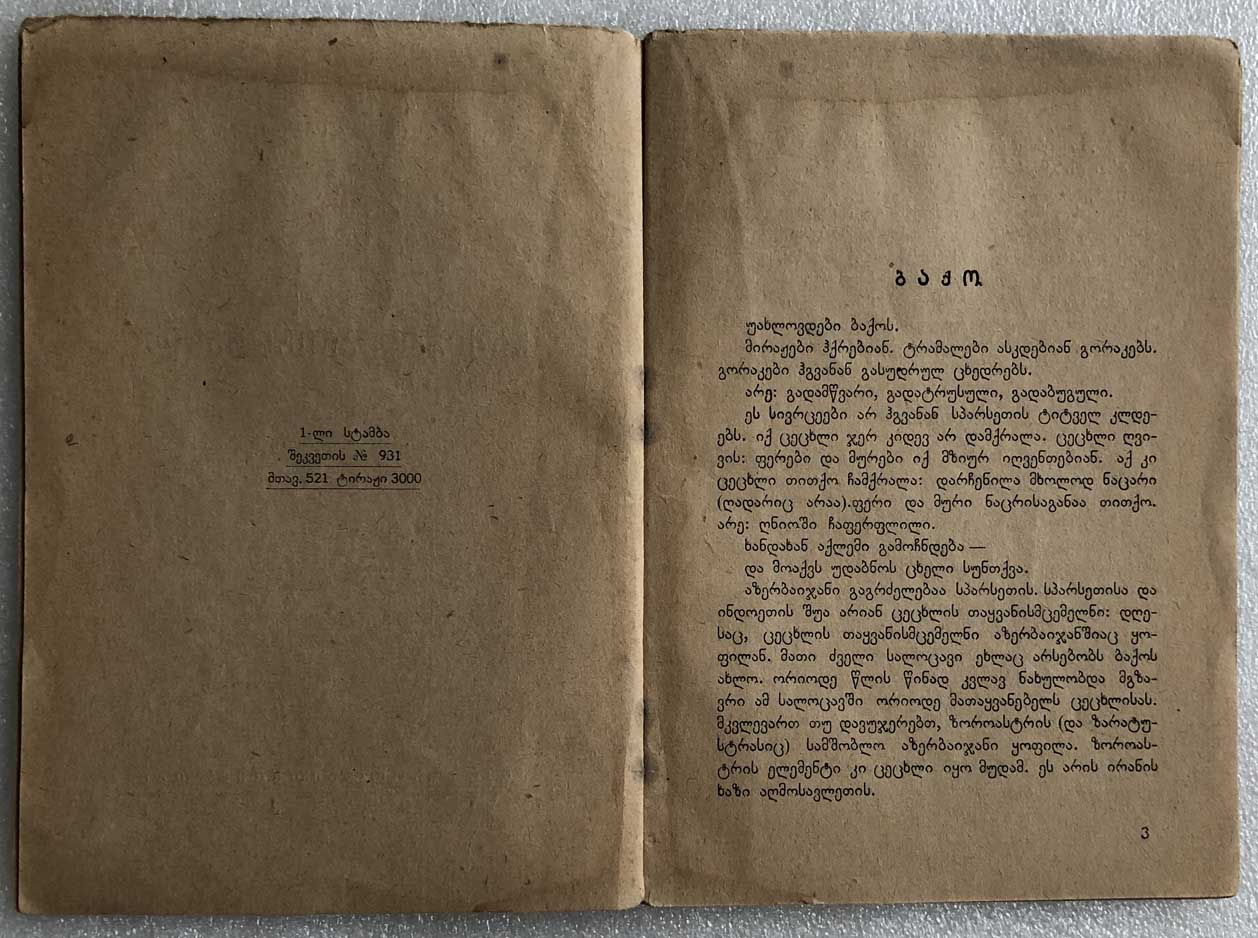 1-ლი სტამბა
შეკვეთის № 931
მთავ. 521 ტირაჟი 3000
ბაქო
უახლოვდები ბაქოს.
მირაჟები ჰქრებიან. ტრამალები ასკდებიან გორაკებს.
გორაკები ჰგვანან გასუდრულ ცხედრებს.
არე: გადამწვარი, გადატრუსული, გადაბუგული.
ეს სივრცეები არ ჰგვანან სპარსეთის ტიტველ კლდე-
ებს. იქ ცეცხლი ჯერ კიდევ არ დამქრალა. ცეცხლი ღვი-
ვის: ფერები და მურები იქ მზიურ იღვენთებიან. აქ კი
ცეცხლი თითქო ჩამქრალა: დარჩენილა მხოლოდ ნაცარი
(ღადარიც არაა).ფერი და მური ნაცრისაგანაა თითქო.
არე: ღნიოში ჩაფერფლილი.
ხანდახან აქლემი გამოჩნდება —
და მოაქვს უდაბნოს ცხელი სუნთქვა.
აზერბაიჯანი გაგრძელებაა სპარსეთის. სპარსეთისა და
ინდოეთის შუა არიან ცეცხლის თაყვანისმცემელნი: დღე-
საც, ცეცხლის თაყვანისმცემელნი აზერბაიჯანშიაც ყო-
ფილან. მათი ძველი სალოცავი ეხლაც არსებობს ბაქოს
ახლო. ორიოდე წლის წინად კვლავ ნახულობდა მგზა-
ვრი ამ სალოცავში ორიოდე მათაყვანებელს ცეცხლისას.
მკვლევართ თუ დავუჯერებთ, ზოროასტრის (და ზარატუ-
სტრასიც) სამშობლო აზერბაიჯანი ყოფილა. ზოროას-
ტრის ელემენტი კი ცეცხლი იყო მუდამ. ეს არის ირანის
ხაზი აღმოსავლეთის.
3